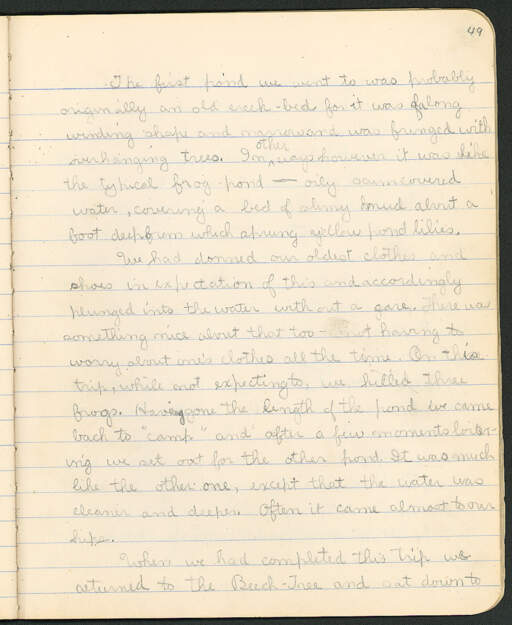 49
The first pond we went to was probably
originally an old creek-bed for it was of a long
winding shape and narrow and was fringed with
overhanging trees. In other ways however it was like
the typical frog-pond — oily scum covered
water, covering a bed of slimy mud about a
foot deep from which sprung yellow pond lilies.
We had donned our oldest clothes and
shoes in expectation of this and accordingly
plunged into the water without a care. There was
something nice about that too — not having to
worry about one's clothes all the time. On this
trip, while not expecting to, we killed three
frogs. Having gone the length of the pond we came
back to "camp" and after a few moments loiter-
ing we set out for the other pond. It was much
like the other one, except that the water was
cleaner and deeper. Often it came almost to our
hips.
When we had completed this trip we
returned to the Beech-Tree and sat down to